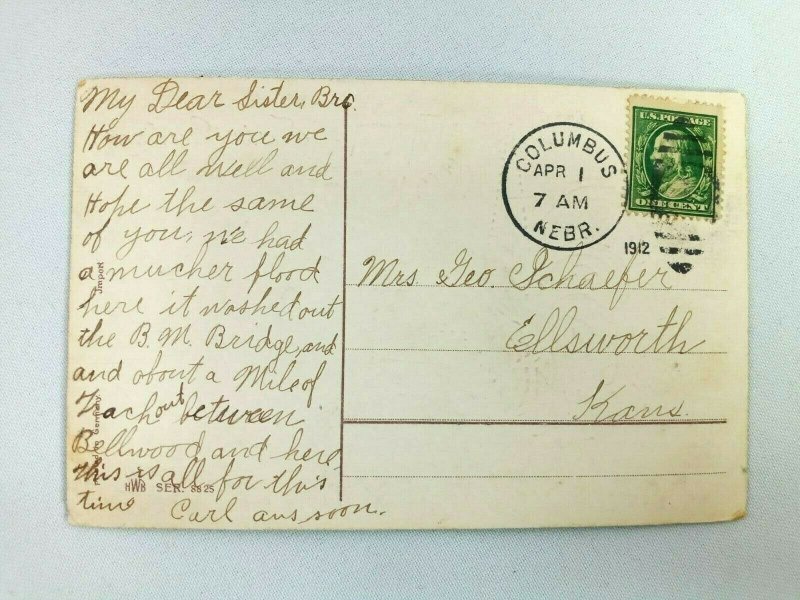 My Dear Sister, Bro.
How are you we
are all well and
Hope the same
of you, we had
a mucher flood
here it washed out
the B. M. Bridge, and
and about a Mile of
Trach out between
Bellwood and here
this is all for this
time Carl ans soon.
Import
Germany
HWB SER. 8825
COLUMBUS
APR 1
7 AM
NEBR.
1912
U.S. POSTAGE
ONE CENT
Mrs Geo. Schaefer
Ellsworth
Kans.